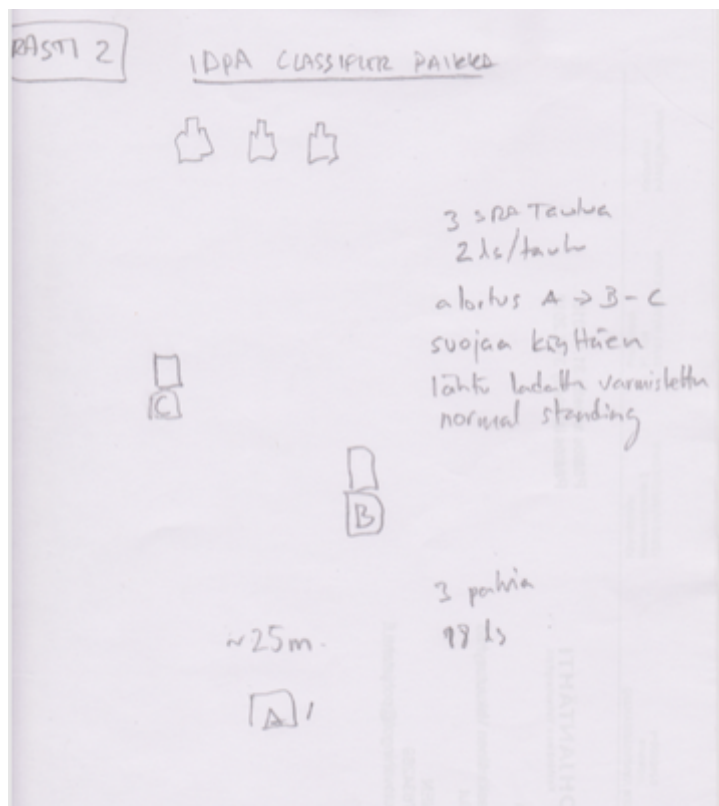 RASTI 2
IDPA CLASSIFIER PAIKKA
3 SRA Taulua
2 ls/taulu
aloitus A → B - C
suojaa käyttäen
lähtö ladattu varmistettu
normal standing
C
B
3 pahvia
18 ls
~25m.
A